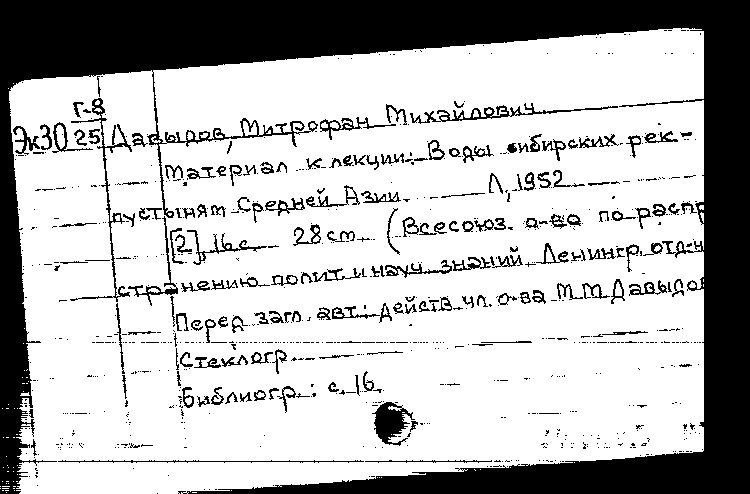 Г-8
Эк30 25 Давыдов, Митрофан Михайлович
Материал к лекции: Воды сибирских рек -
пустыням Средней Азии. Л, 1952
[2], 16 с. 28 cm. (Всесоюз. о-во по распр
странению полит и науч. знаний. Ленингр. отд-н
Перед загл. авт.: действ. чл. о-ва М М Давыдов
Стеклогр.
Библиогр.: с. 16.